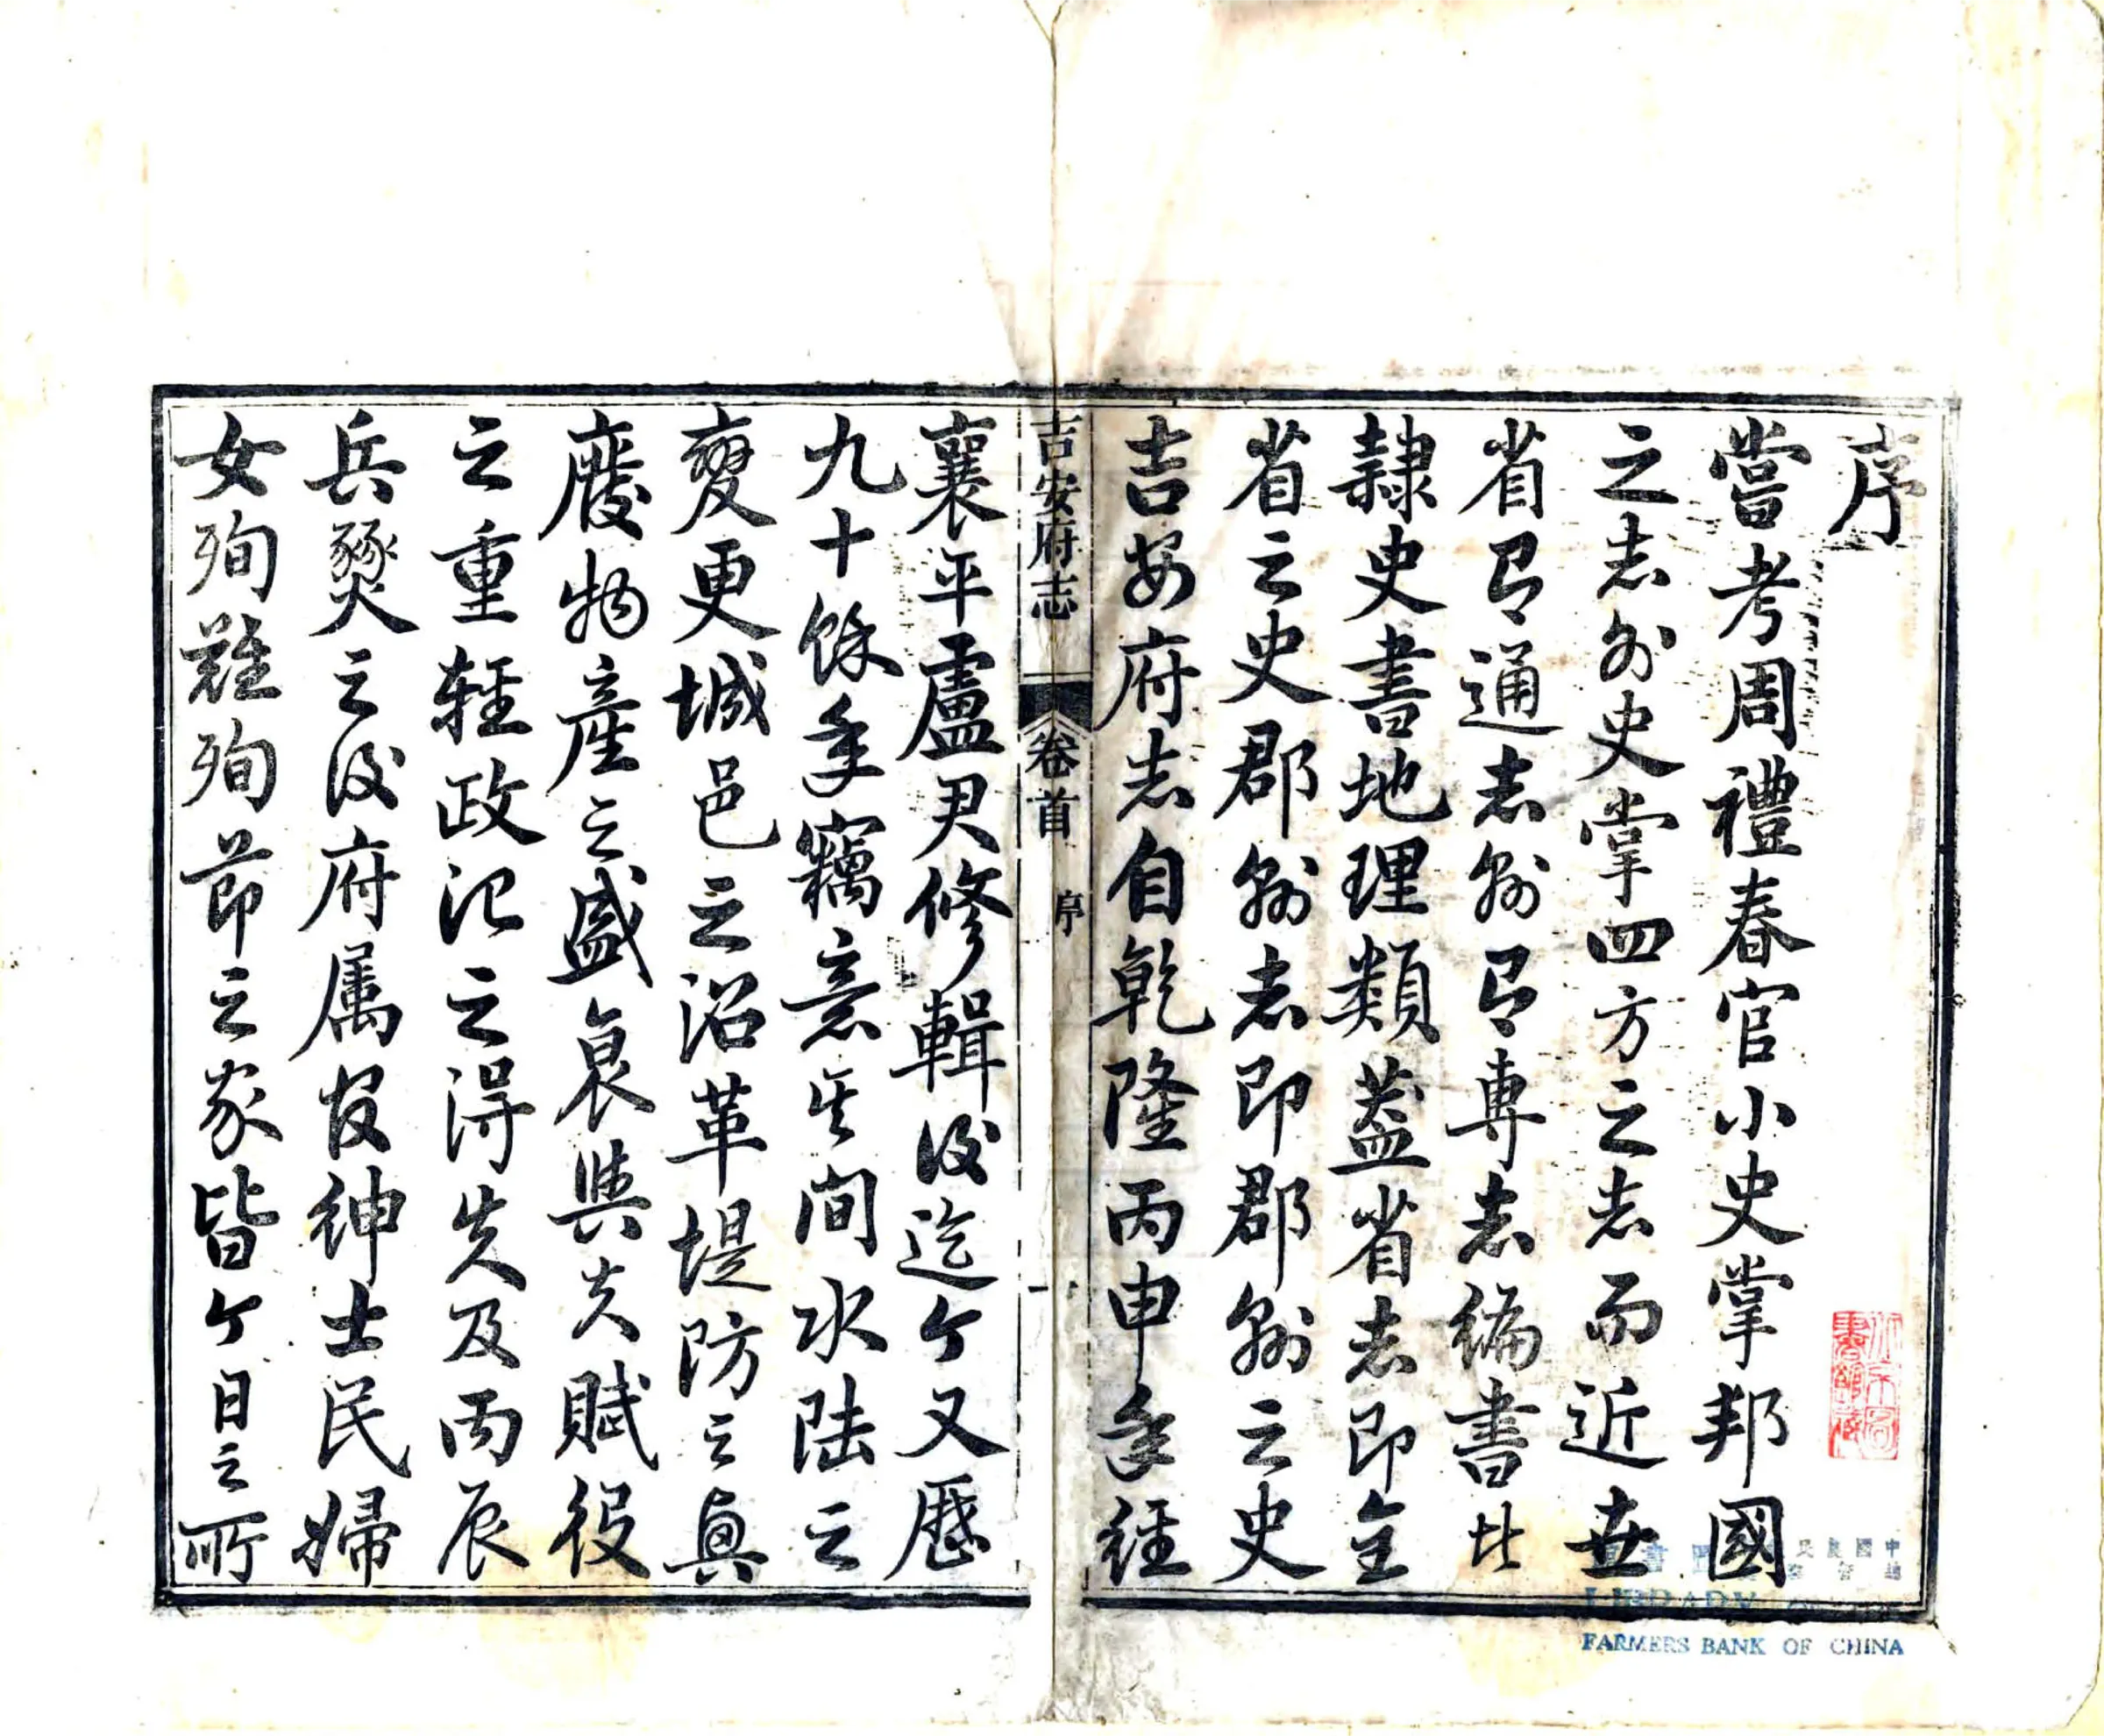 序
嘗考周禮春官小史掌邦國
之志外史掌四方之志而近世
省有通志州有專志編書比
隸史書地理類蓋省志即全
省之史郡州志即郡州之史
吉安府志自乾隆丙申年經
吉安府志 卷首 序 一
襄平盧君修輯後迄今又歷
九十餘年竊意其間水陸之
變更城邑之沿革堤防之興
廢物産之盛衰與夫賦役
之重輕政治之得失及丙辰
兵燹之後府属官紳士民婦
女殉難殉節之家皆今日之所
FARMERS BANK OF CHINA